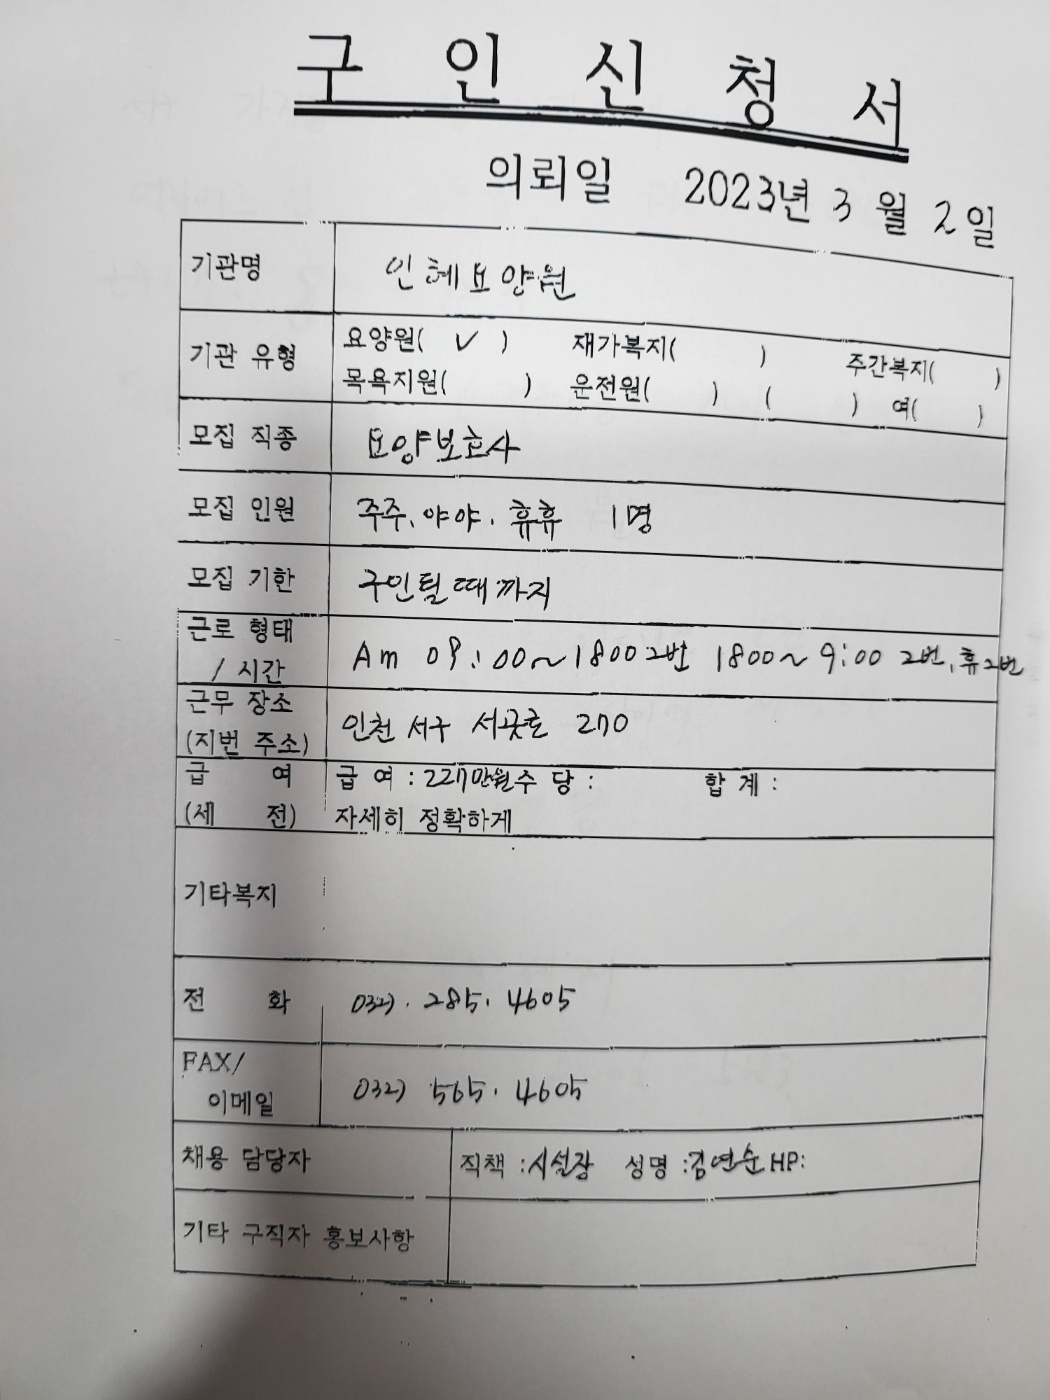 구 인 신 청 서
의뢰일 2023년 3 월 2일
기관명 인혜요양원
기관 유형 요양원( ✓ ) 재가복지( ) 주간복지( )
목욕지원( ) 운전원( ) ( ) 여( )
모집 직종 요양보호사
모집 인원 주주, 야야, 휴휴 1명
모집 기한 구인될때까지
근로 형태 / 시간 Am 09:00~1800 2번 1800~9:00 2번, 휴2번
근무 장소 (지번 주소) 인천 서구 서곶로 270
급 여 급 여 : 227만월 수 당 : 합 계 :
(세 전) 자세히 정확하게
기타복지
전 화 032) 285. 4605
FAX/ 이메일 032) 565. 4605
채용 담당자 직책 :시설장 성명 :김연순 HP:
기타 구직자 홍보사항